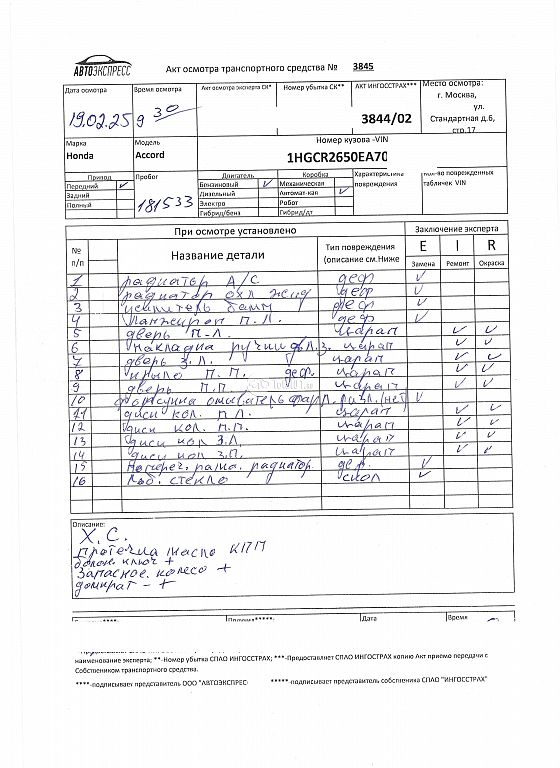 АВТОЭКСПРЕСС
Акт осмотра транспортного средства № 3845
Дата осмотра Время осмотра Акт осмотра эксперта СК* Номер убытка СК** АКТ ИНГОССТРАХ*** Место осмотра:
19.02.25 9 30 3844/02 г. Москва,
ул.
Стандартная д.6,
стр.17
Марка Модель Номер кузова -VIN
Honda Accord 1HGCR2650EA70
Привод Пробег Двигатель Коробка Характеристика повреждения кол-во поврежденных табличек VIN
Передний ✓ 181533 Бензиновый ✓ Механическая
Задний Дизельный Автомат-кая ✓
Полный Электро Робот
Гибрид/бенз Гибрид/дт
При осмотре установлено Заключение эксперта
№ п/п Название детали Тип повреждения (описание см.Ниже E I R
Замена Ремонт Окраска
1 радиатор А/С деф ✓
2 радиатор охл жид деф ✓
3 усилитель бамп деф ✓
4 Ланжерон П.Л. деф ✓
5 дверь П-Л царап ✓ ✓
6 накладка ручки дв.Л.З. царап ✓ ✓
7 дверь З.Л. царап ✓ ✓
8 крыло П.П. деф. царап ✓ ✓
9 дверь П.П царап ✓ ✓
10 форсунка омыватель фар П. разл.(нет) ✓
11 диск кол. П Л. царап ✓ ✓
12 диск кол. П.П. царап ✓ ✓
13 диск кол З.Л. царап ✓ ✓
14 диск кол З.П. царап ✓ ✓
15 попереч. рамка. радиатор. деф. ✓
16 Лоб. стекло скол ✓
Описание:
Х.С.
Протечка масло КПП
балон. ключ +
Запасное колесо +
домкрат - +
Дата Время
наименование эксперта; **-Номер убытка СПАО ИНГОССТРАХ; ***-Предоставляет СПАО ИНГОСТРАХ копию Акт приемо передачи с
Собствеником транспортного средства.
****-подписывает представитель ООО "АВТОЭКСПРЕС *****-подписывает представитель собственика СПАО "ИНГОССТРАХ"